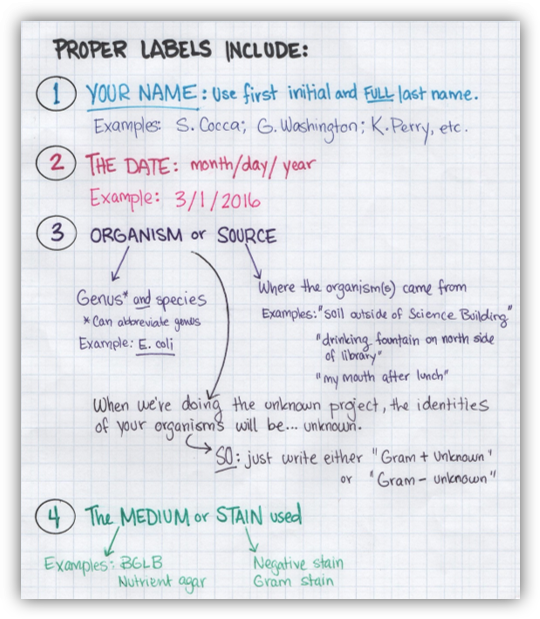 PROPER LABELS INCLUDE:
1 YOUR NAME: Use first initial and FULL last name.
Examples: S. Cocca; G. Washington; K. Perry, etc.
2 THE DATE: month/day/year
Example: 3/1/2016
3 ORGANISM or SOURCE
Genus* and species
*Can abbreviate genus
Example: E. coli
Where the organism(s) came from
Examples: "soil outside of Science Building"
"drinking fountain on north side
of library"
"my mouth after lunch"
When we're doing the unknown project, the identities
of your organisms will be... unknown.
SO: just write either "Gram + unknown"
or "Gram - unknown"
4 The MEDIUM or STAIN used
Examples: BGLB
Nutrient agar
Negative stain
Gram stain